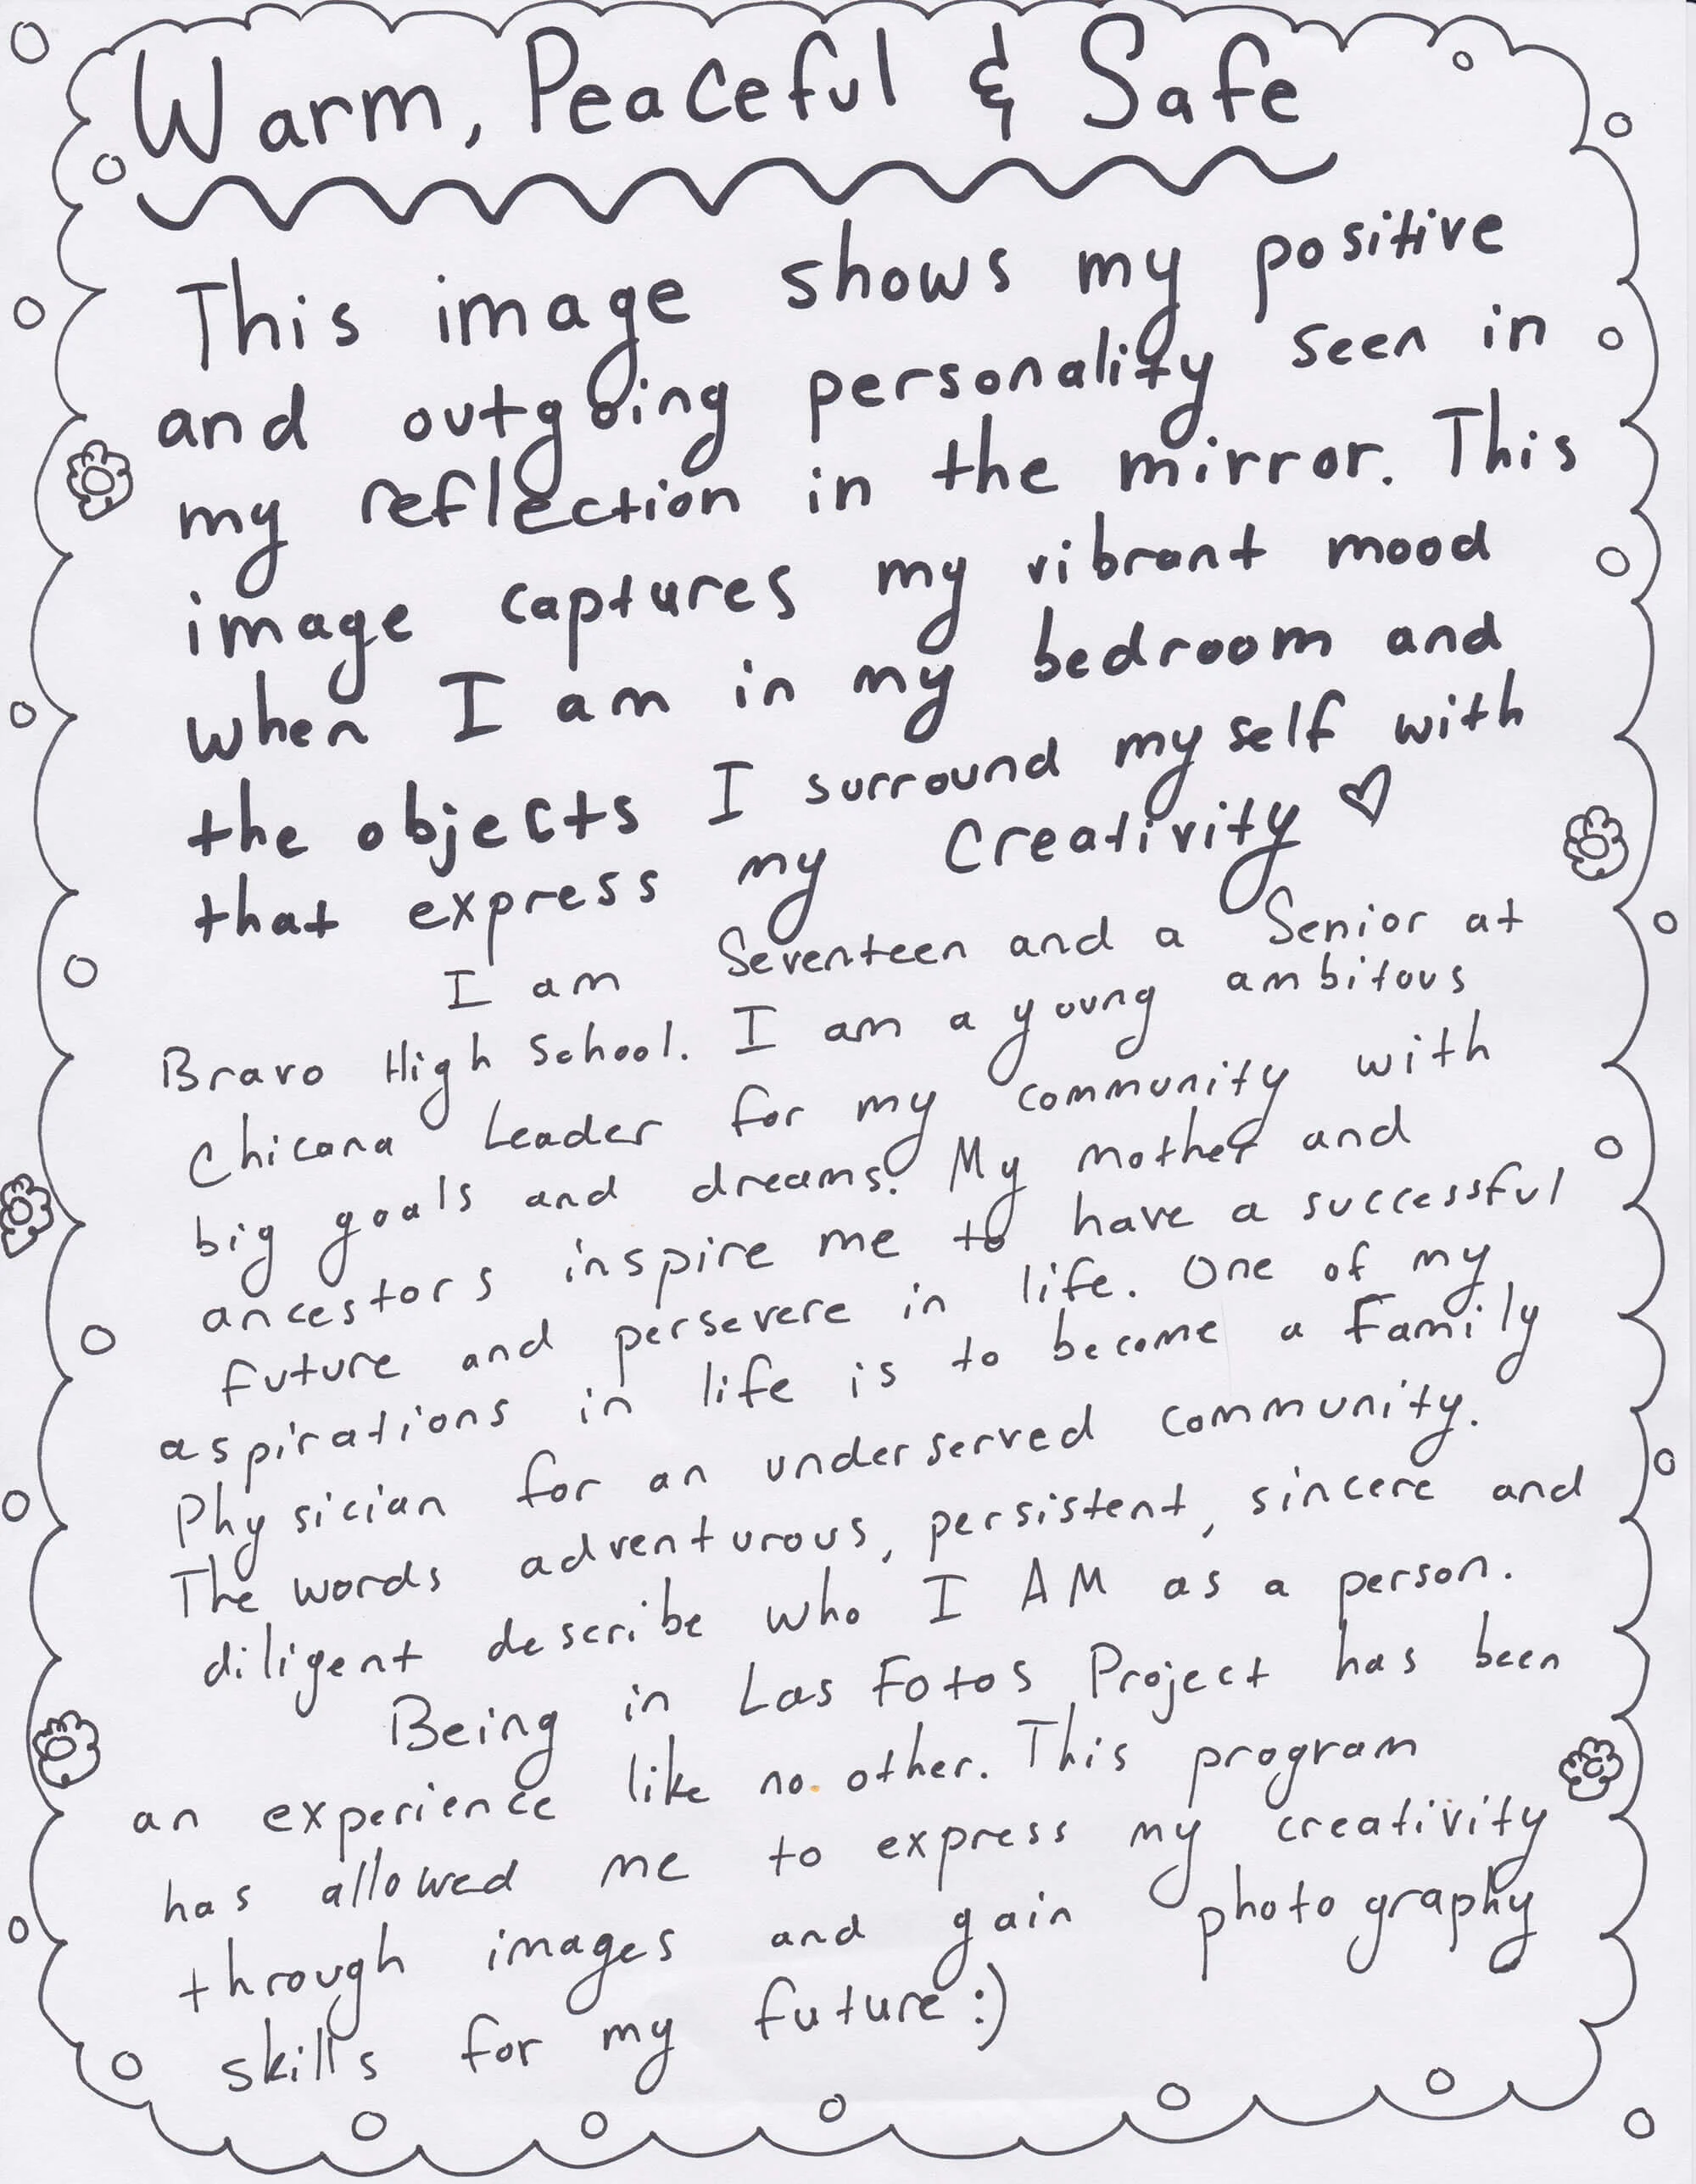 Warm, Peaceful & Safe
This image shows my positive
and outgoing personality seen in
my reflection in the mirror. This
image captures my vibrant mood
when I am in my bedroom and
the objects I surround myself with
that express my creativity ♡
I am Seventeen and a Senior at
Bravo High School. I am a young ambitous
Chicana Leader for my community with
big goals and dreams. My mother and
ancestors inspire me to have a successful
future and persevere in life. One of my
aspirations in life is to become a Family
Physician for an underserved community.
The words adventurous, persistent, sincere and
diligent describe who I AM as a person.
Being in Las Fotos Project has been
an experience like no other. This program
has allowed me to express my creativity
through images and gain photography
skills for my future :)